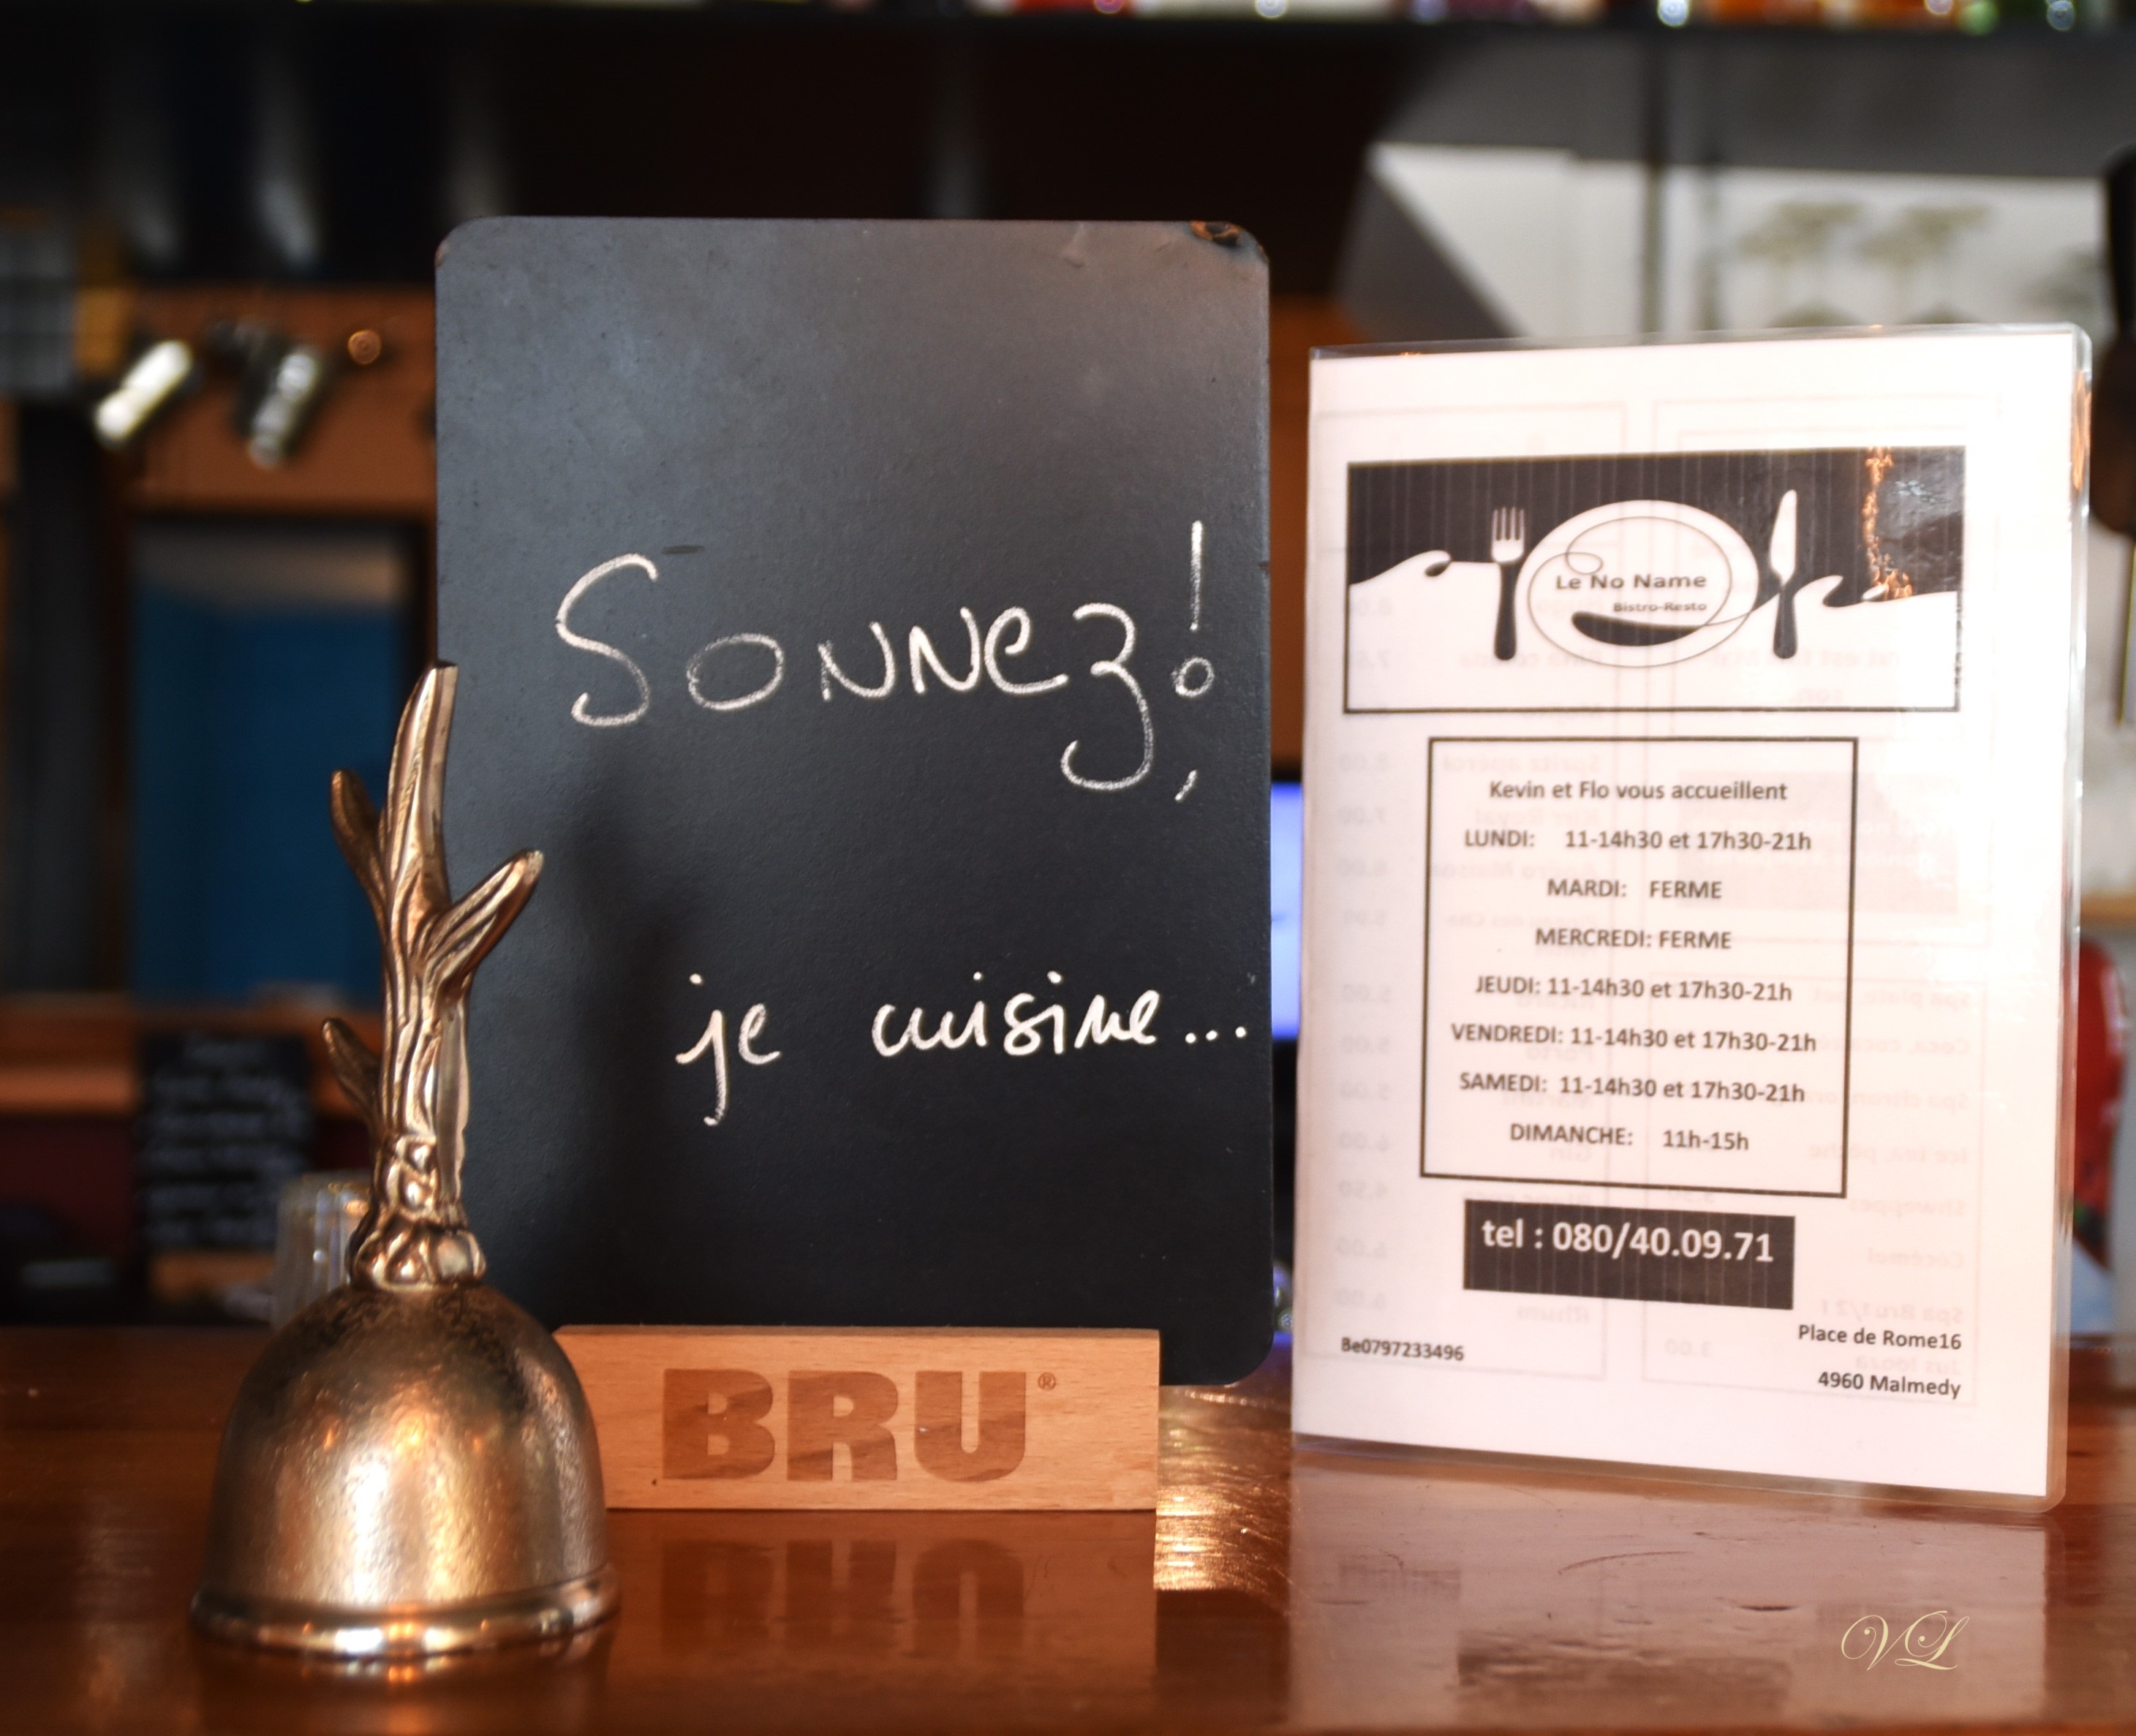 Sonnez!,
je cuisine...
BRU®
Le No Name
Bistro-Resto
Kevin et Flo vous accueillent
LUNDI: 11-14h30 et 17h30-21h
MARDI: FERME
MERCREDI: FERME
JEUDI: 11-14h30 et 17h30-21h
VENDREDI: 11-14h30 et 17h30-21h
SAMEDI: 11-14h30 et 17h30-21h
DIMANCHE: 11h-15h
tel : 080/40.09.71
Be0797233496
Place de Rome16
4960 Malmedy
VL